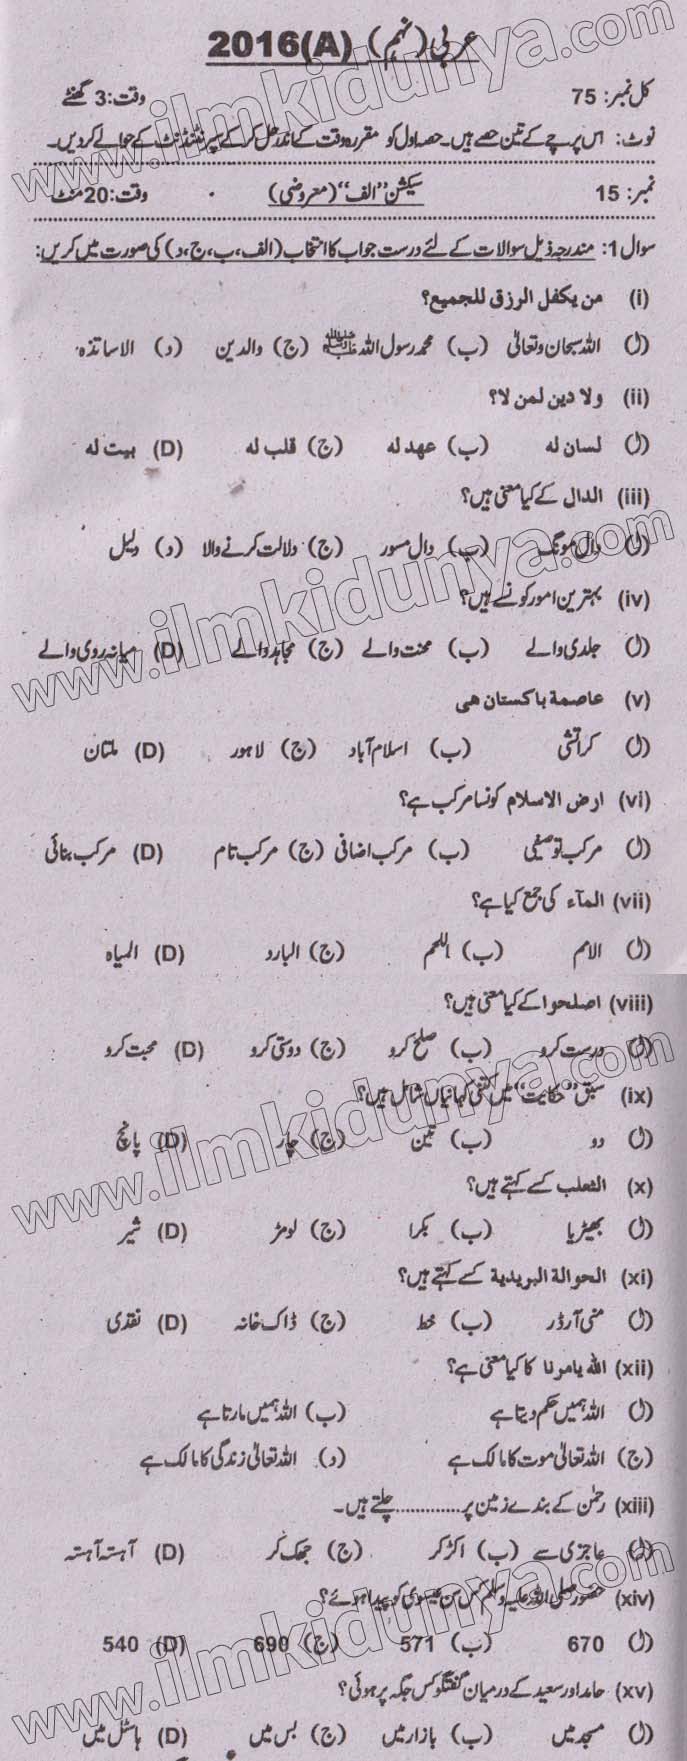 عربی (نہم) 2016(A)
کل نمبر: 75 وقت: 3 گھنٹے
نوٹ: اس پرچے کے تین حصے ہیں۔ حصہ اول کو مقررہ وقت کے اندر حل کر کے سپرنٹنڈنٹ کے حوالے کر دیں۔
نمبر: 15 سیکشن "الف" (معروضی) وقت: 20 منٹ
سوال 1: مندرجہ ذیل سوالات کے لئے درست جواب کا انتخاب (الف، ب، ج، د) کی صورت میں کریں:
(i) من يكفل الرزق للجميع؟
(ا) اللہ سبحان وتعالیٰ (ب) محمد رسول اللہ ﷺ (ج) والدین (د) الاساتذہ
(ii) ولا دين لمن لا؟
(ا) لسان له (ب) عهد له (ج) قلب له (D) بيت له
(iii) الدال کے کیا معنی ہیں؟
(ا) دال مونگ (ب) دال مسور (ج) دلالت کرنے والا (د) دلیل
(iv) بہترین امور کونسے ہیں؟
(ا) جلدی والے (ب) محنت والے (ج) مجاہد والے (D) میانہ روی والے
(v) عاصمة باكستان هى
(ا) کراتشی (ب) اسلام آباد (ج) لاہور (D) ملتان
(vi) ارض الاسلام کونسا مرکب ہے؟
(ا) مرکب توصیفی (ب) مرکب اضافی (ج) مرکب تام (D) مرکب بنائی
(vii) المآء کی جمع کیا ہے؟
(ا) الامم (ب) اللحم (ج) البارد (D) المیاہ
(viii) اصلحوا کے کیا معنی ہیں؟
(ا) درست کرو (ب) صلح کرو (ج) دوستی کرو (D) محبت کرو
(ix) سبق "حکایت" میں کتنی کہانیاں شامل ہیں؟
(ا) دو (ب) تین (ج) چار (D) پانچ
(x) الثعلب کسے کہتے ہیں؟
(ا) بھیڑیا (ب) بکرا (ج) لومڑ (D) شیر
(xi) الحوالة البريدية کسے کہتے ہیں؟
(ا) منی آرڈر (ب) خط (ج) ڈاک خانہ (D) نقدی
(xii) الله يامرنا کا کیا معنی ہے؟
(ا) اللہ ہمیں حکم دیتا ہے (ب) اللہ ہمیں مارتا ہے
(ج) اللہ تعالیٰ موت کا مالک ہے (د) اللہ تعالیٰ زندگی کا مالک ہے
(xiii) رحمٰن کے بندے زمین پر ............. چلتے ہیں۔
(ا) عاجزی سے (ب) اکڑ کر (ج) جھک کر (D) آہستہ آہستہ
(xiv) حضور صلی اللہ علیہ وسلم کس سن عیسوی کو پیدا ہوئے؟
(ا) 670 (ب) 571 (ج) 690 (D) 540
(xv) حامد اور سعید کے درمیان گفتگو کس جگہ پر ہوئی؟
(ا) مسجد میں (ب) بازار میں (ج) بس میں (D) ہاسٹل میں
www.ilmkidunya.com
www.ilmkidunya.com
www.ilmkidunya.com
www.ilmkidunya.com